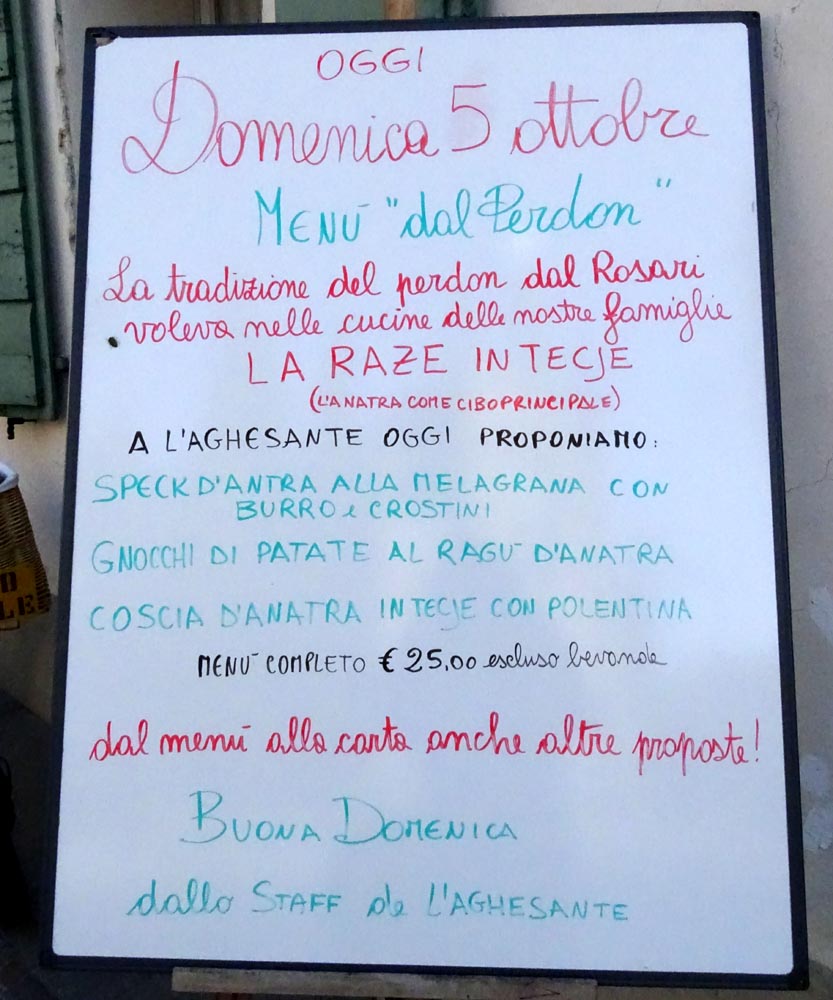 OGGI
Domenica 5 ottobre
MENÙ "dal Perdon"
La tradizione del perdon dal Rosari
voleva nelle cucine delle nostre famiglie
LA RAZE IN TECJE
(L'ANATRA COME CIBO PRINCIPALE)
A L'AGHESANTE OGGI PROPONIAMO:
SPECK D'ANTRA ALLA MELAGRANA CON
BURRO e CROSTINI
GNOCCHI DI PATATE AL RAGÙ D'ANATRA
COSCIA D'ANATRA IN TECJE CON POLENTINA
MENÙ COMPLETO € 25,00 escluso bevande
dal menù alla carta anche altre proposte!
BUONA DOMENICA
dallo STAFF de L'AGHESANTE